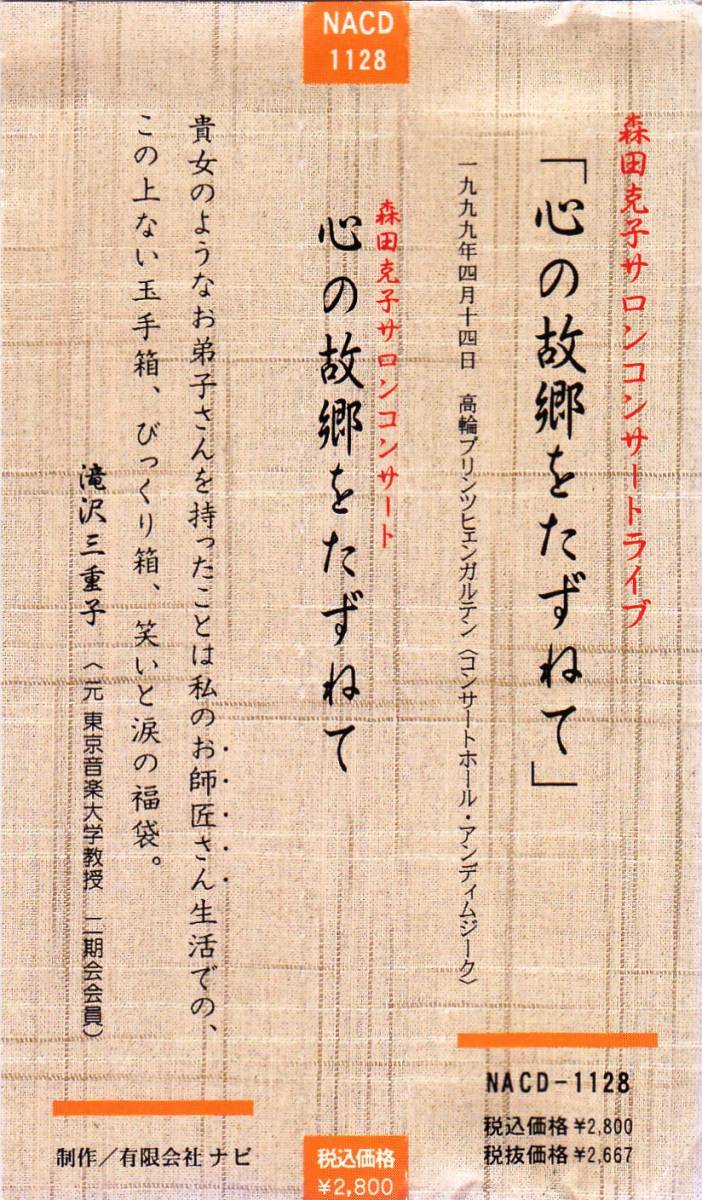 森田克子サロンコンサートライブ
「心の故郷をたずねて」
一九九九年四月十四日　高輪プリンツヒェンガルテン〈コンサートホール・アンディムジーク〉
NACD-1128
税込価格¥2,800
税抜価格¥2,667
NACD
1128
森田克子サロンコンサート
心の故郷をたずねて
税込価格
¥2,800
貴女のようなお弟子さんを持ったことは私のお師匠さん生活での、
この上ない玉手箱、びっくり箱、笑いと涙の福袋。
滝沢三重子〈元 東京音楽大学教授　二期会会員〉
制作／有限会社 ナビ